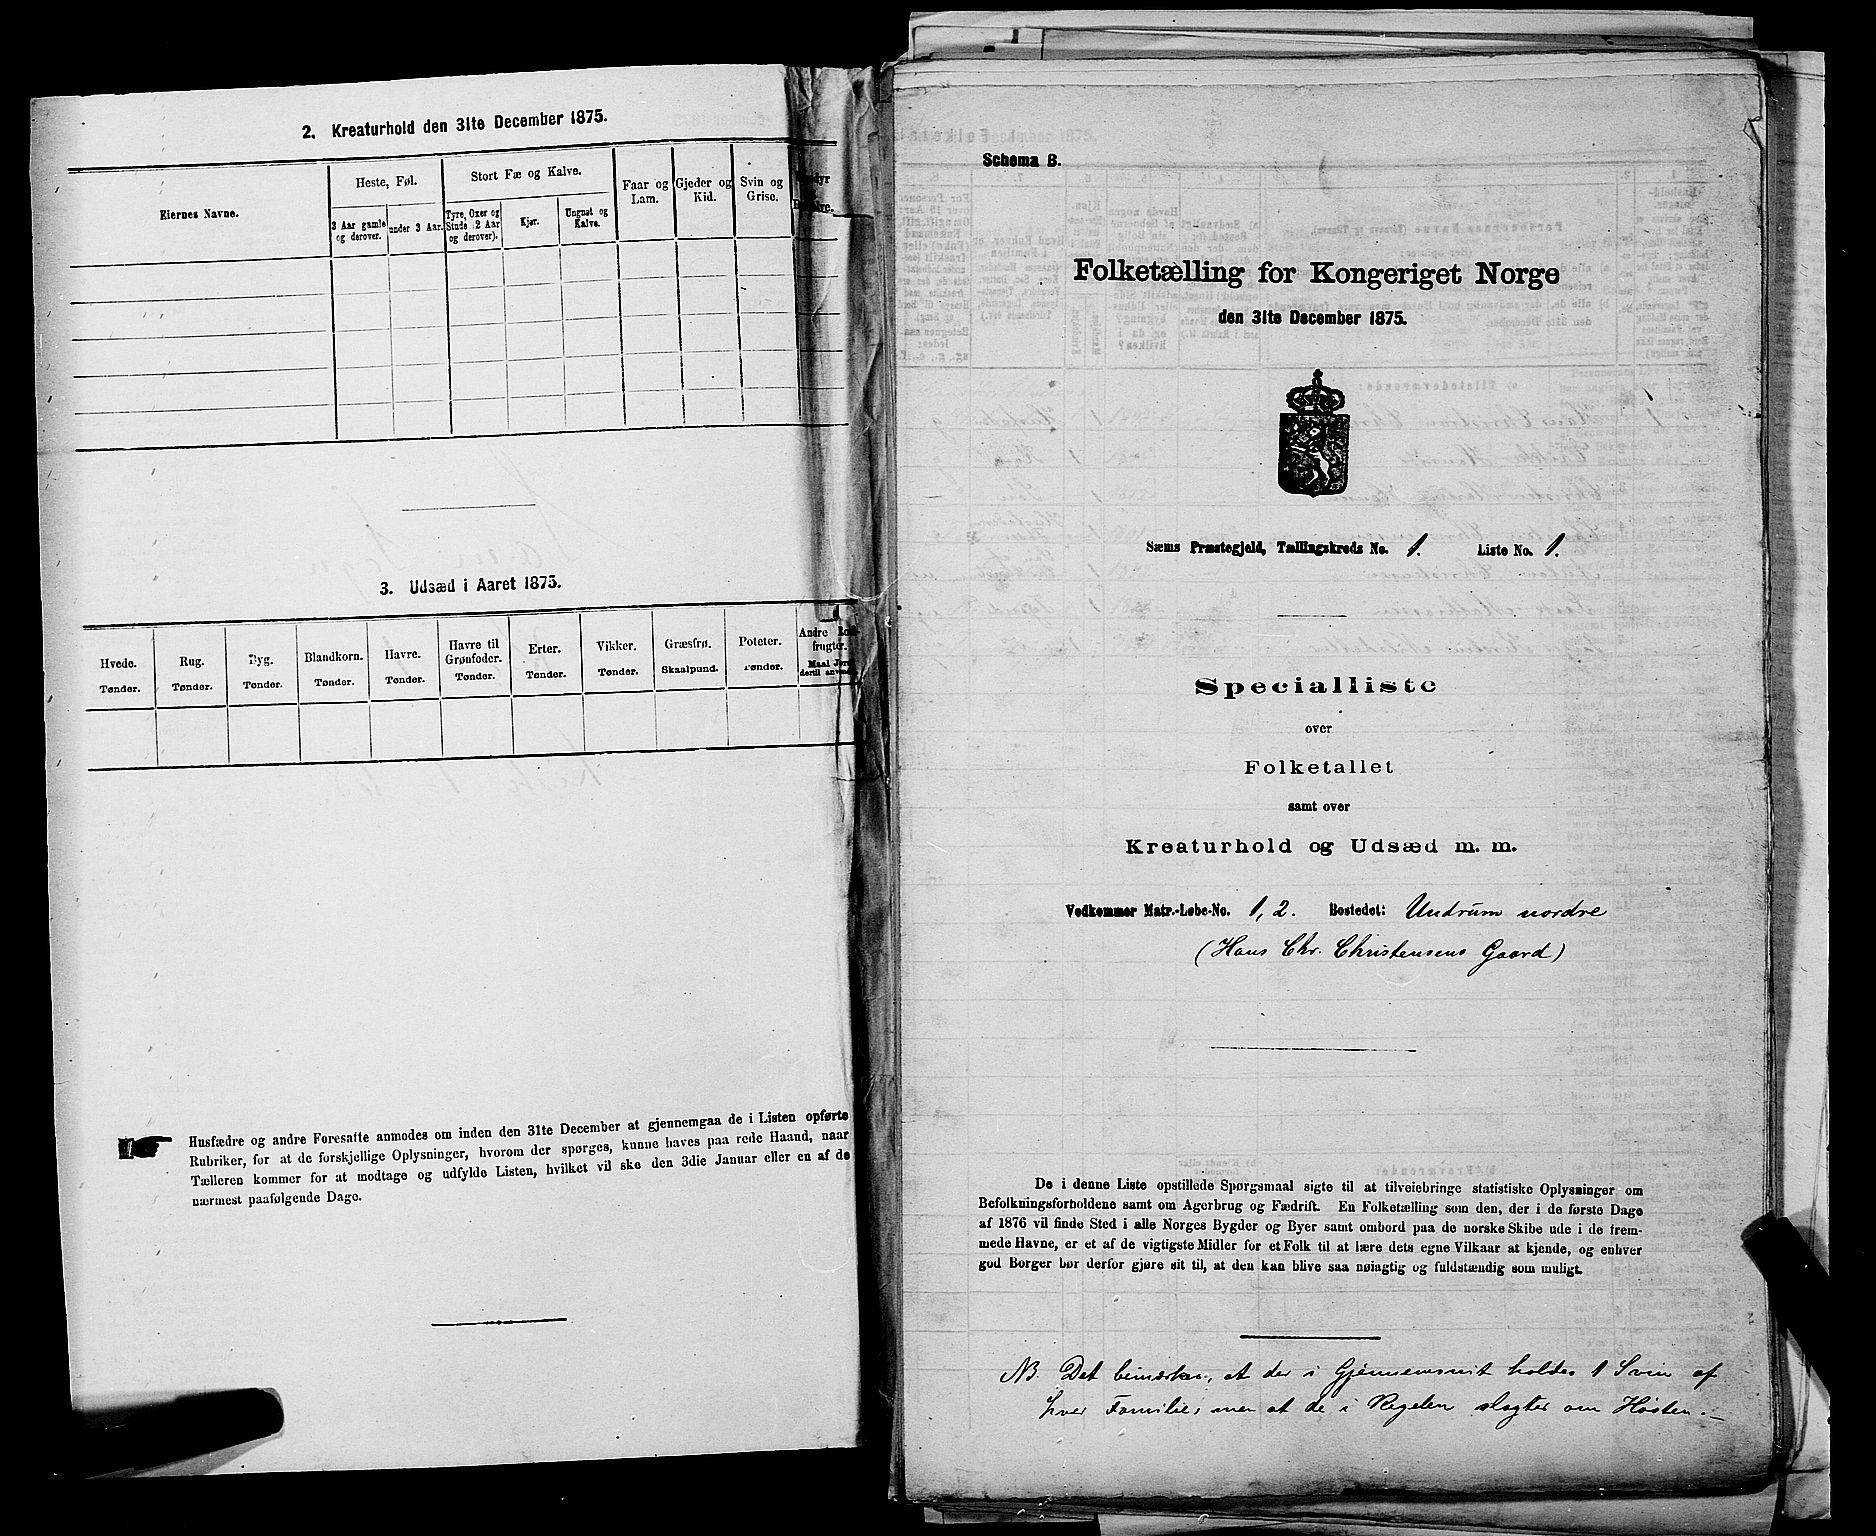 2. Kreaturhold den 31te December 1875.
Eiernes Navne.
Heste, Føl.
3 Aar gamle
og derover.
under 3 Aar.
Stort Fæ og Kalve.
Tyre, Oxer og
Stude (2 Aar
og derover).
Kjør.
Ungnøt og
Kalve.
Faar og
Lam.
Gjeder og
Kid.
Svin og
Grise.
3. Udsæd i Aaret 1875.
Hvede.
Tønder.
Rug.
Tønder.
Byg.
Tønder.
Blandkorn.
Tønder.
Havre.
Tønder.
Havre til
Grønfoder.
Tønder.
Erter.
Tønder.
Vikker.
Tønder.
Græsfrø.
Skaalpund.
Poteter.
Tønder.
Andre Rod-
frugter.
Maal Jord
dertil anvendt
Husfædre og andre Foresatte anmodes om inden den 31te December at gjennemgaa de i Listen opførte
Rubriker, for at de forskjellige Oplysninger, hvorom der spørges, kunne haves paa rede Haand, naar
Tælleren kommer for at modtage og udfylde Listen, hvilket vil ske den 3die Januar eller en af de
nærmest paafølgende Dage.
Schema B.
Folketælling for Kongeriget Norge
den 31te December 1875.
Sæms Præstegjeld, Tællingskreds No. 1. Liste No. 1.
Specialliste
over
Folketallet
samt over
Kreaturhold og Udsæd m. m.
Vedkommer Matr.-Løbe-No. 1, 2. Bostedet: Undrum nordre
(Hans Chr. Christensens Gaard)
De i denne Liste opstillede Spørgsmaal sigte til at tilveiebringe statistiske Oplysninger om
Befolkningsforholdene samt om Agerbrug og Fædrift. En Folketælling som den, der i de første Dage
af 1876 vil finde Sted i alle Norges Bygder og Byer samt ombord paa de norske Skibe ude i de frem-
mede Havne, er et af de vigtigste Midler for et Folk til at lære dets egne Vilkaar at kjende, og enhver
god Borger bør derfor gjøre sit til, at den kan blive saa nøiagtig og fuldstændig som muligt.
NB. Det bemærkes, at der i Gjennemsnit holdes 1 Svin af
hver Familie, men at de i Regelen slagtes om Høsten.—